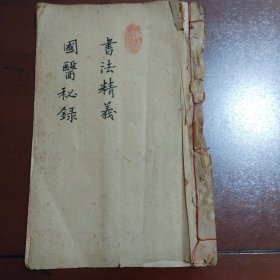 書法精義
國醫秘録